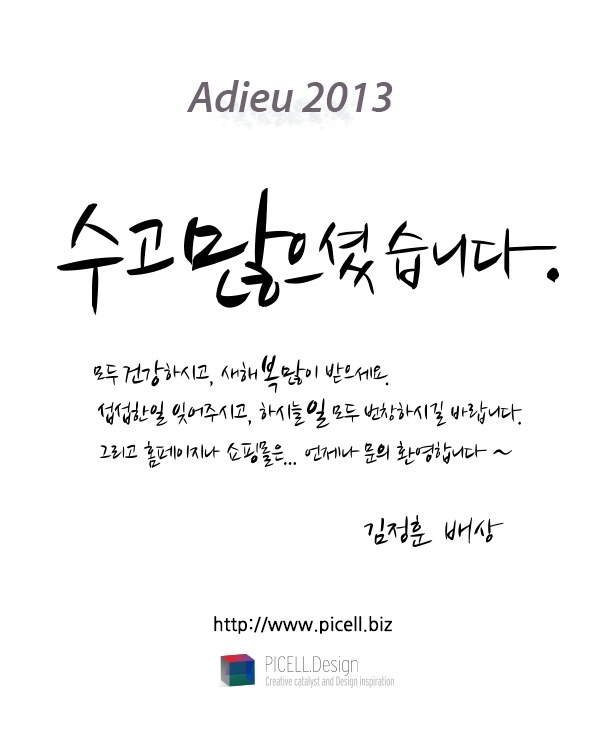 Adieu 2013
수고많으셨습니다.
모두건강하시고, 새해복많이 받으세요.
섭섭한일 잊어주시고, 하시는일 모두 번창하시길 바랍니다.
그리고 홈페이지나 쇼핑몰은... 언제나 문의 환영합니다 ~
김정훈 배상
http://www.picell.biz
PICELL.Design
Creative catalyst and Design inspiration